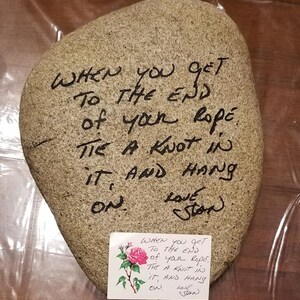 WHEN YOU GET
TO THE END
OF YOUR ROPE,
TIE A KNOT IN
IT, AND HANG
ON. LOVE
JEAN
WHEN YOU GET
TO THE END
OF YOUR ROPE,
TIE A KNOT IN
IT, AND HANG
ON LOVE
JEAN